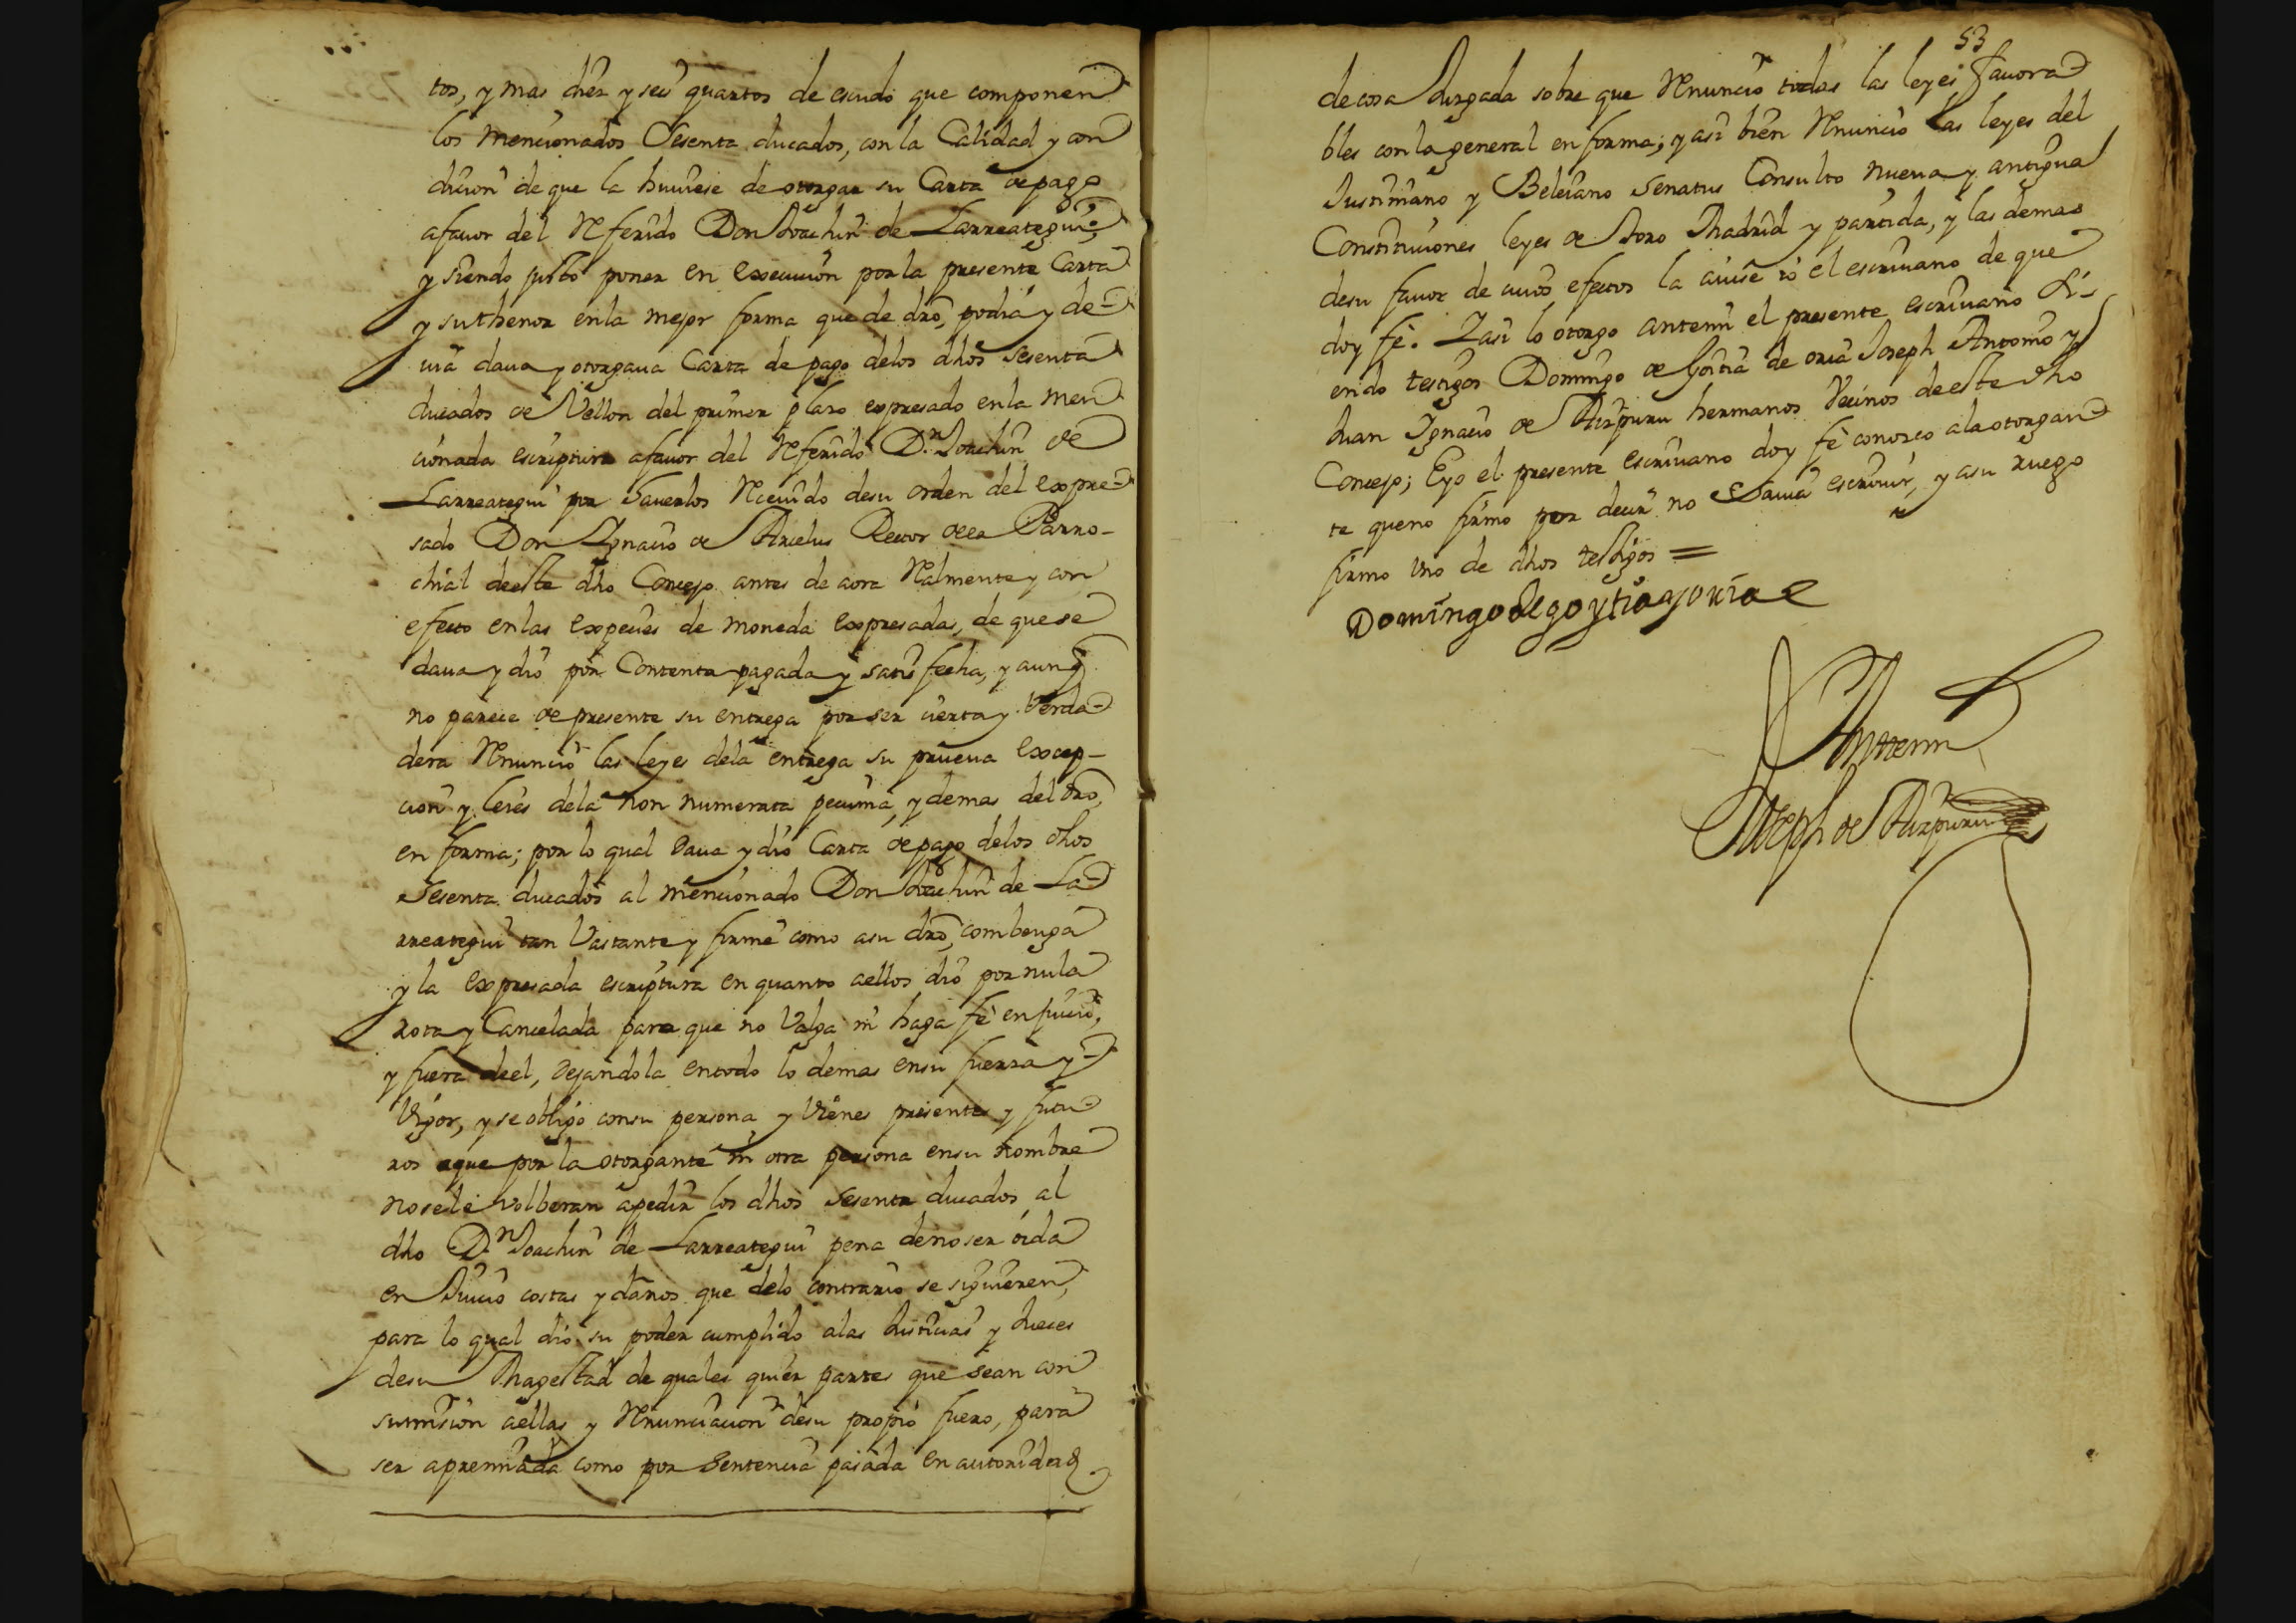 tos, y mas diez y seis quartos de escudo que componen
los mencionados Sesenta ducados, con la Calidad y con
dicion de que la huuiese de otorgar su Carta de pago
a fauor del Referido Don Joachin de Larreategui;
y siendo justo poner en execucion por la presente Carta
y su thenor en la mejor forma que de dro, podia y de-
uia daua y otorgaua Carta de pago delos dhos sesenta
ducados de Vellon del primer plazo expresado en la men
cionada escriptura a fauor del Referido Dn Joachin de
Larreategui por hauerlos Receuido de su orden del expre-
sado Don Ygnacio de Arcelus Rector de la Parro-
chial de este dho Concejo antes de aora Realmente y con
efecto en las expecies de moneda expresadas, de que se
daua y dio por Contenta pagada y satisfecha, y aunq
no parece de presente su entrega por ser cierta y Verda-
dera Renuncio las leyes dela entrega su prueua excep-
cion y leies dela non numerata pecunia, y demas del dro,
en forma; por lo qual daua y dio Carta de pago delos dhos
Sesenta ducados al mencionado Don Joachin de La-
rreategui tan Vastante y firme como a su dro, combenga
y la expresada escriptura en quanto a ellos dio por nula
rota y Cancelada para que no Valga ni haga fe en juicio,
y fuera de el, dejandola en todo lo demas en su fuerza y
Vigor, y se obligo con su persona y Vienes presentes y futu-
ros a que por la otorgante ni otra persona en su nombre
no se le volberan a pedir los dhos sesenta ducados al
dho Dn Joachin de Larreategui pena de no ser oida
en Juicio costas y daños que delo contrario se siguieren,
para lo qual dio su poder cumplido a las Justicias y Jueces
de su Magestad de quales quier partes que sean con
sumision a ellas y Renunciacion de su propio fuero, para
ser apremiada como por Sentencia pasada en autoridad
53
de cosa Juzgada sobre que Renuncio todas las leyes fauora-
bles con la general en forma; y asi bien Renuncio las leyes del
Justiniano y Beleiano Senatus Consulto nueva y antigua
Constituciones leyes de Toro Madrid y partida, y las demas
de su fauor de cuios efectos la auise io el escriuano de que
doy fe. Y asi lo otorgo ante mi el presente escriuano si-
endo testigos Domingo de Goitia de oria Joseph Antonio y
Juan Ygnacio de Aizpuru hermanos Vecinos de este dho
Concejo; E yo el presente escriuano doy fe conozco a la otorgan-
te que no firmo por decir no Sauia escriuir, y a su ruego
firmo Uno de dhos testigos =
Domingo de goytia y oria
Ante mi
Joseph de Aizpuru